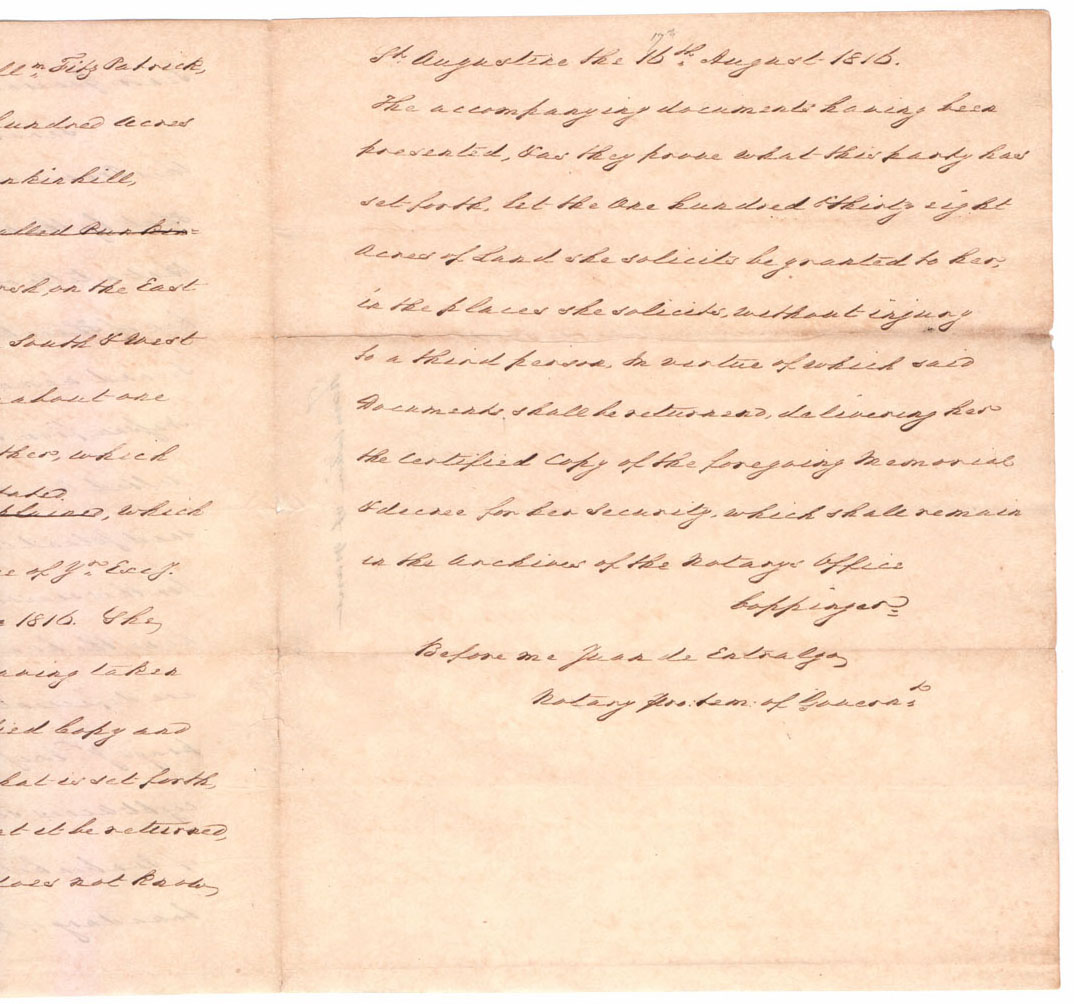 llm Fitz Patrick,
hundred acres
nkinhill,
alled Punkin=
rsh, on the East
South & West
about one
ther, which
tated
plained, which
e of Yr. Excy.
e 1816. She
aving taken
ied Copy and
hat is set forth,
at it be returned,
does not know,
17th
St. Augustine the 16th. August 1816.
The accompanying documents having been
presented, & as they prove what this party has
set forth, let the One hundred & thirty eight
Acres of Land she solicits be granted to her,
in the places she solicits, without injury
to a third person. In virtue of which said
Documents shall be returnend, delivering her
the Certified Copy of the foregoing Memorial
& decree for her security, which shall remain
in the Archives of the Notarys Office
Coppinger=
Before me Juan de Entralgo,
Notary pro: tem: of Governt.